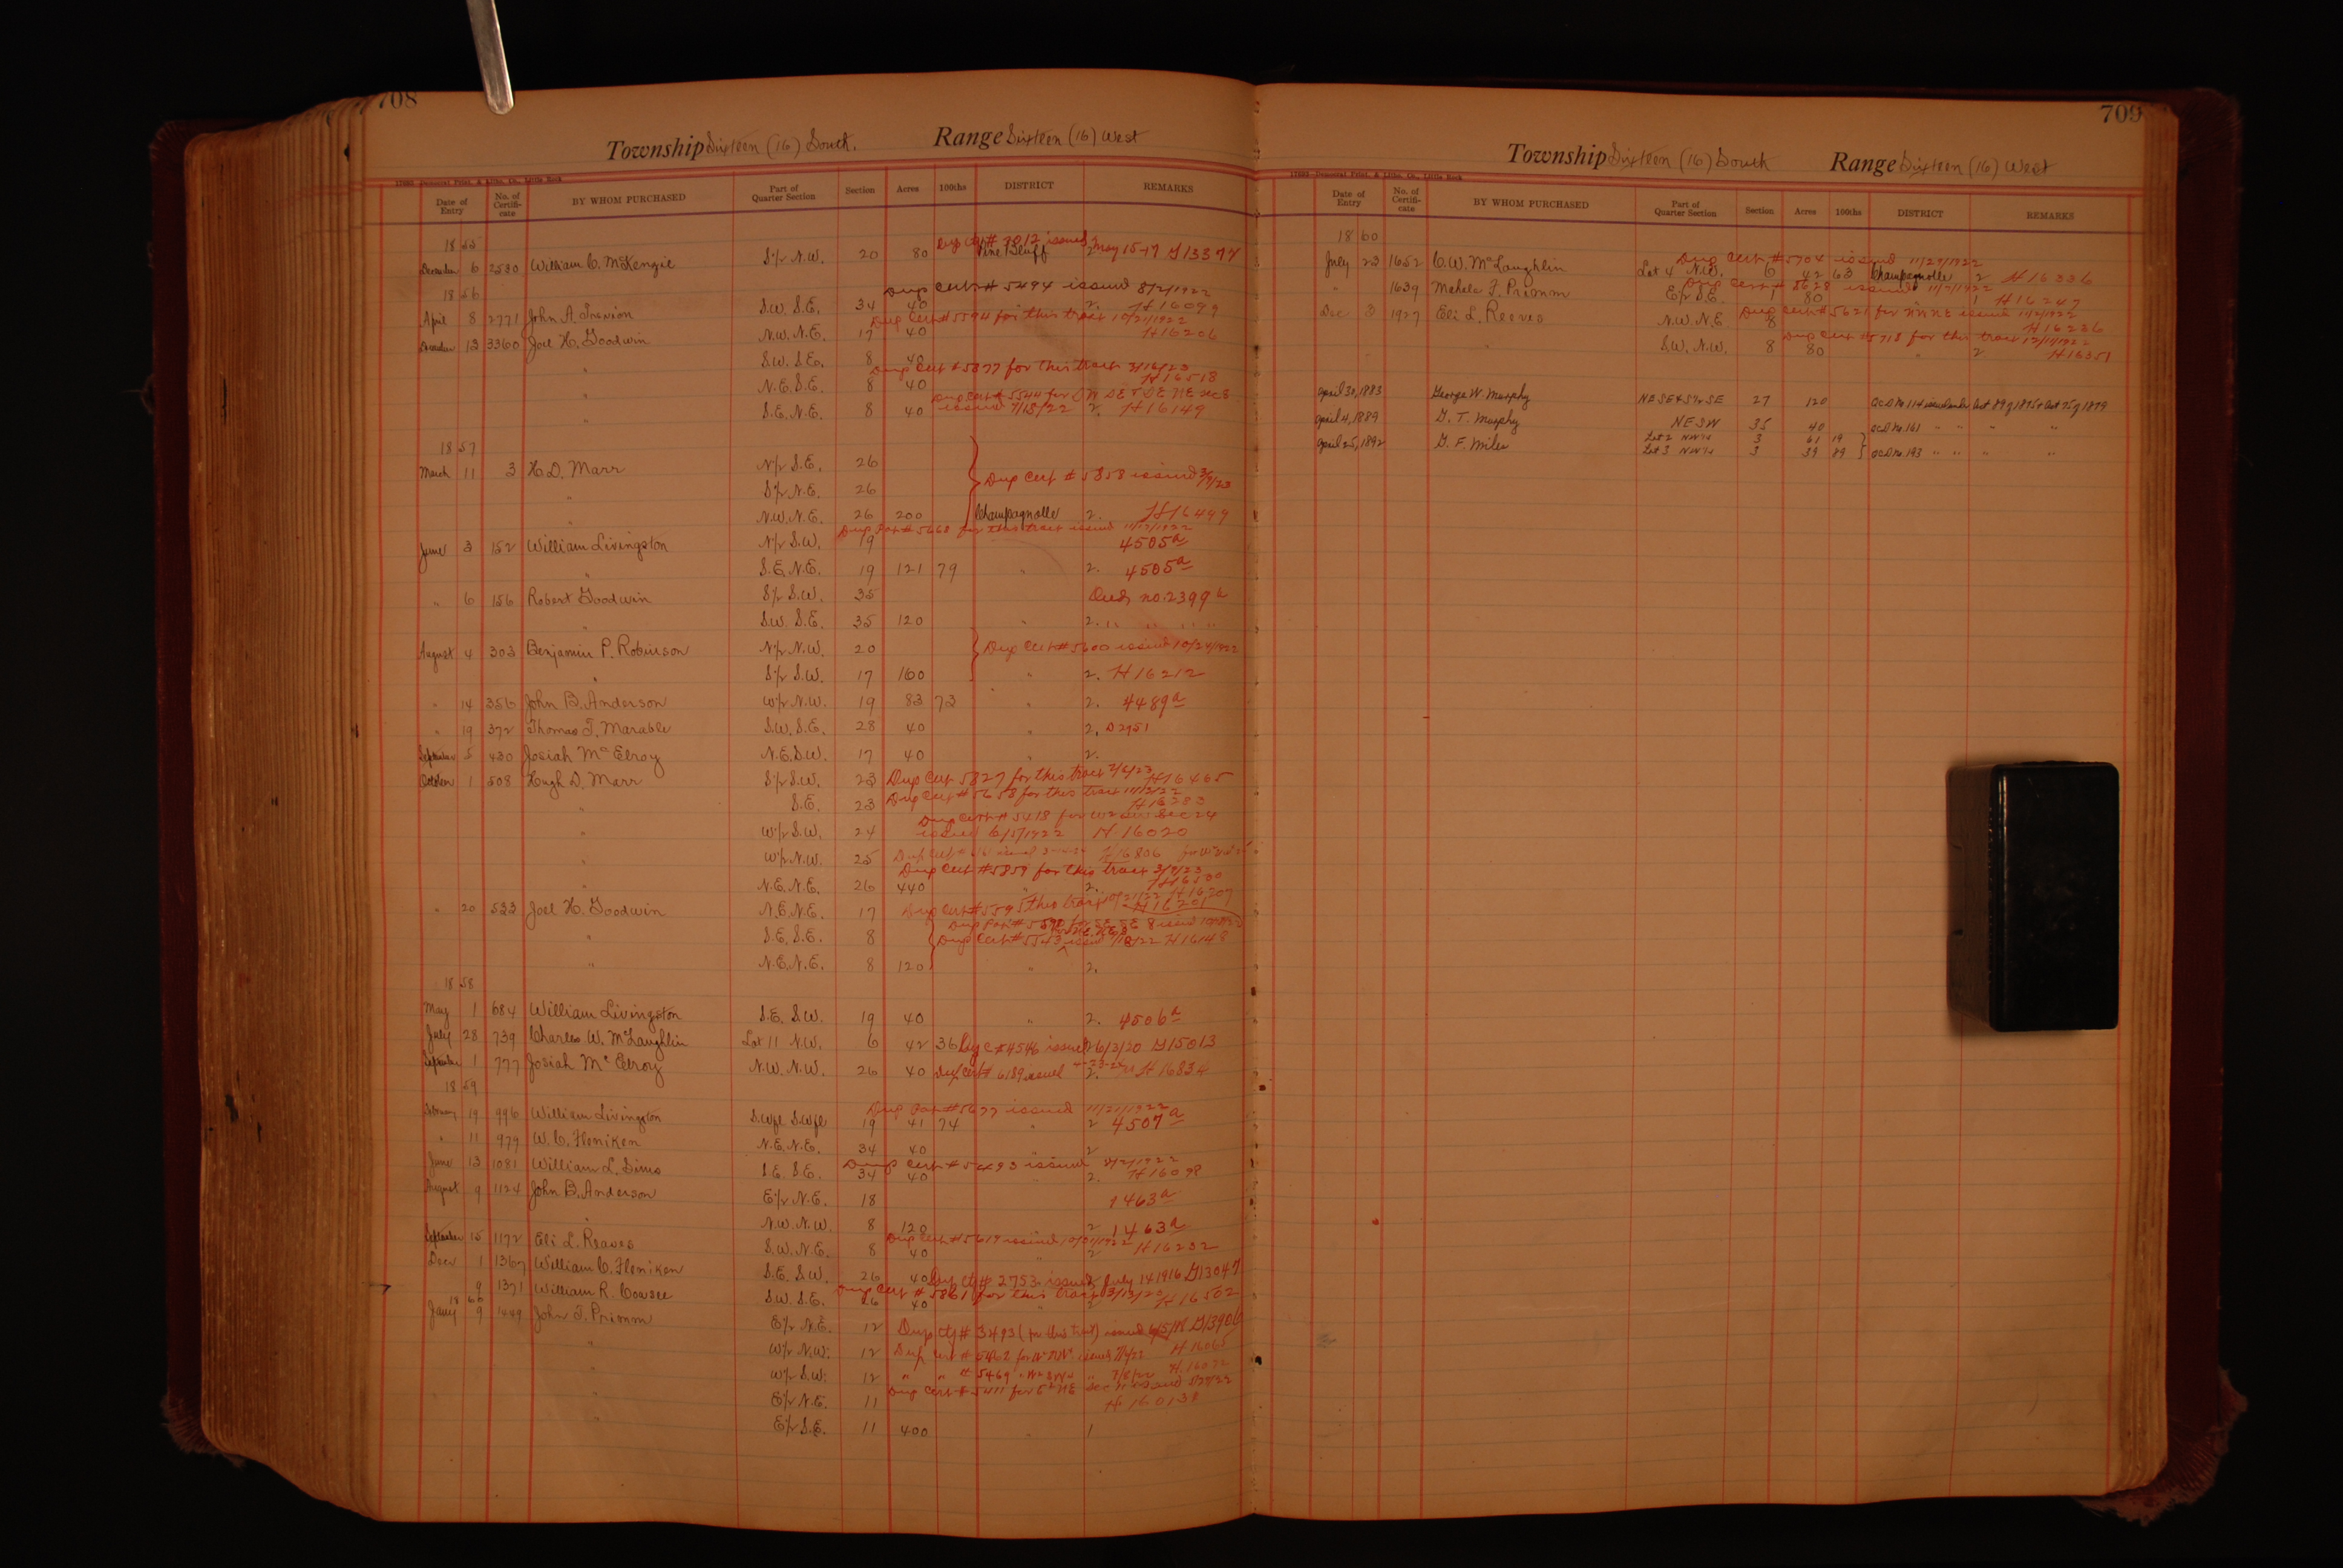 708
Township Sixteen (16) South. Range Sixteen (16) West
Date of Entry No. of Certificate BY WHOM PURCHASED Part of Quarter Section Section Acres 100ths DISTRICT REMARKS
1855
Dup ctf # 3012 issued May 15-17 G13377
December 6 2530 William C. McKenzie S½ N.W. 20 80 Pine Bluff 2
1856
Dup Cert # 5494 issued 8/2/1922
April 8 2771 John A. Trevion S.W. S.E. 34 40 2. H16099
Dup Cert # 5594 for this tract 10/21/1922
December 13 3360 Joel H. Goodwin N.W. N.E. 17 40 H16206
" S.W. S.E. 8 40
Dup Cert # 5877 for this tract 3/16/23
" N.E. S.E. 8 40 H16518
Dup Cert # 5544 for S W SE & SE NE sec 8
" S.E. N.E. 8 40 issued 9/18/22 2. H16149
1857
March 11 3 H. D. Marr N½ S.E. 26
" S½ N.E. 26 Dup Cert # 5858 issued 3/9/23
" N.W. N.E. 26 200 Champagnolle 2. H16499
Dup Pat # 5668 for this tract issued 11/17/1922
June 3 152 William Livingston N½ S.W. 19 4505a
" S.E. N.E. 19 121 79 " 2. 4505a
" 6 156 Robert Goodwin S½ S.W. 35 Deeds no. 2399a
" S.W. S.E. 35 120 " 2. " " " "
August 4 303 Benjamin P. Robinson N½ N.W. 20 Dup Cert # 5600 issued 10/24/1922
" S½ S.W. 17 160 " 2. H16212
" 14 356 John B. Anderson W½ N.W. 19 83 73 " 2. 4489a
" 19 372 Thomas T. Marable S.W. S.E. 28 40 " 2. D2951
September 5 430 Josiah McElroy N.E. S.W. 17 40 " 2.
October 1 508 Hugh D. Marr S½ S.W. 23 Dup Cert 5827 for this tract 2/6/23 H16465
" S.E. 23 Dup Cert # 5658 for this tract 11/13/22 H16283
Dup Cert # 5418 for W2 SW Sec 24
" W½ S.W. 24 issued 6/5/1922 H 16020
" W½ N.W. 25 H16806
Dup Cert # 5859 for this tract 3/9/23
" N.E. N.E. 26 440 " 2. H16500
" 20 533 Joel H. Goodwin N.E. N.E. 17 Dup Cert # 5595 this tract 10/21/22 H16207
" S.E. S.E. 8 Dup Cert # 5543 issued 9/18/22 H16148
" N.E. N.E. 8 120 " 2.
1858
May 1 684 William Livingston S.E. S.W. 19 40 " 2. 4506a
July 28 739 Charles W. McLaughlin Lot 11 N.W. 6 42 36 Dup C # 4546 issued 6/3/20 G15013
September 1 777 Josiah McElroy N.W. N.W. 26 40 Dup Cert # 6189 issued 2. H16834
1859
Dup Pat # 5677 issued 11/21/1922
February 19 996 William Livingston S.Wfl S.Wfl 19 41 74 " 2 4507a
" 11 979 W. C. Fleniken N.E. N.E. 34 40 " 2
Dup Cert # 5493 issued 8/2/1922
June 13 1081 William L. Sims S.E. S.E. 34 40 " 2. H16098
August 9 1124 John B. Anderson E½ N.E. 18 1463a
" N.W. N.W. 8 120 2 1463a
Dup Cert # 5619 issued 10/31/1922
September 15 1172 Eli L. Reaves S.W. N.E. 8 40 " 2 H16232
Decr 1 1367 William C. Fleniken S.E. S.W. 26 40 Dup ctf # 2753 issued July 14 1916 G13047
Dup Cert # 5861 for this tract 3/13/23
9 1371 William R. Cowsee S.W. S.E. 26 40 " 2 H16502
1860
Jany 9 1449 John T. Primm E½ N.E. 12 Dup ctf # 3493 (for this tract) issued G13906
" W½ N.W. 12 Dup Cert # 5462 for W2 NW issued 7/6/22 H16065
" W½ S.W. 12 " " # 5469 " W2 SW " 7/8/22 H16072
Dup Cert # 5411 for E2 NE Sec 11 issued 5/27/22
" E½ N.E. 11 H 16013
" E½ S.E. 11 400 " 1
709
Township Sixteen (16) South Range Sixteen (16) West
Date of Entry No. of Certificate BY WHOM PURCHASED Part of Quarter Section Section Acres 100ths DISTRICT REMARKS
1860
Dup Cert # 5704 issued 11/29/1922
July 23 1652 C. W. McLaughlin Lot 4 N.W. 6 42 63 Champagnolle 2 H16336
" 1639 Mahala F. Primm E½ S.E. 1 80 " 1 H16247
Dup Cert # 5621 for NW NE issued 11/2/1922
Dec 3 1927 Eli L. Reaves N.W. N.E. 8 H16236
Dup Cert # 5718 for this tract 12/11/1922
" S.W. N.W. 8 80 " 2 H16351
April 30, 1883 George W. Murphy NE SE & S½ SE 27 120
April 4, 1889 G. T. Murphy NE SW 35 40 OCD No. 161 " " " "
April 25, 1892 G. F. Miles Lot 2 NW¼ 3 61 19
Lot 3 NW¼ 3 39 89 OCD No. 193 " " " "